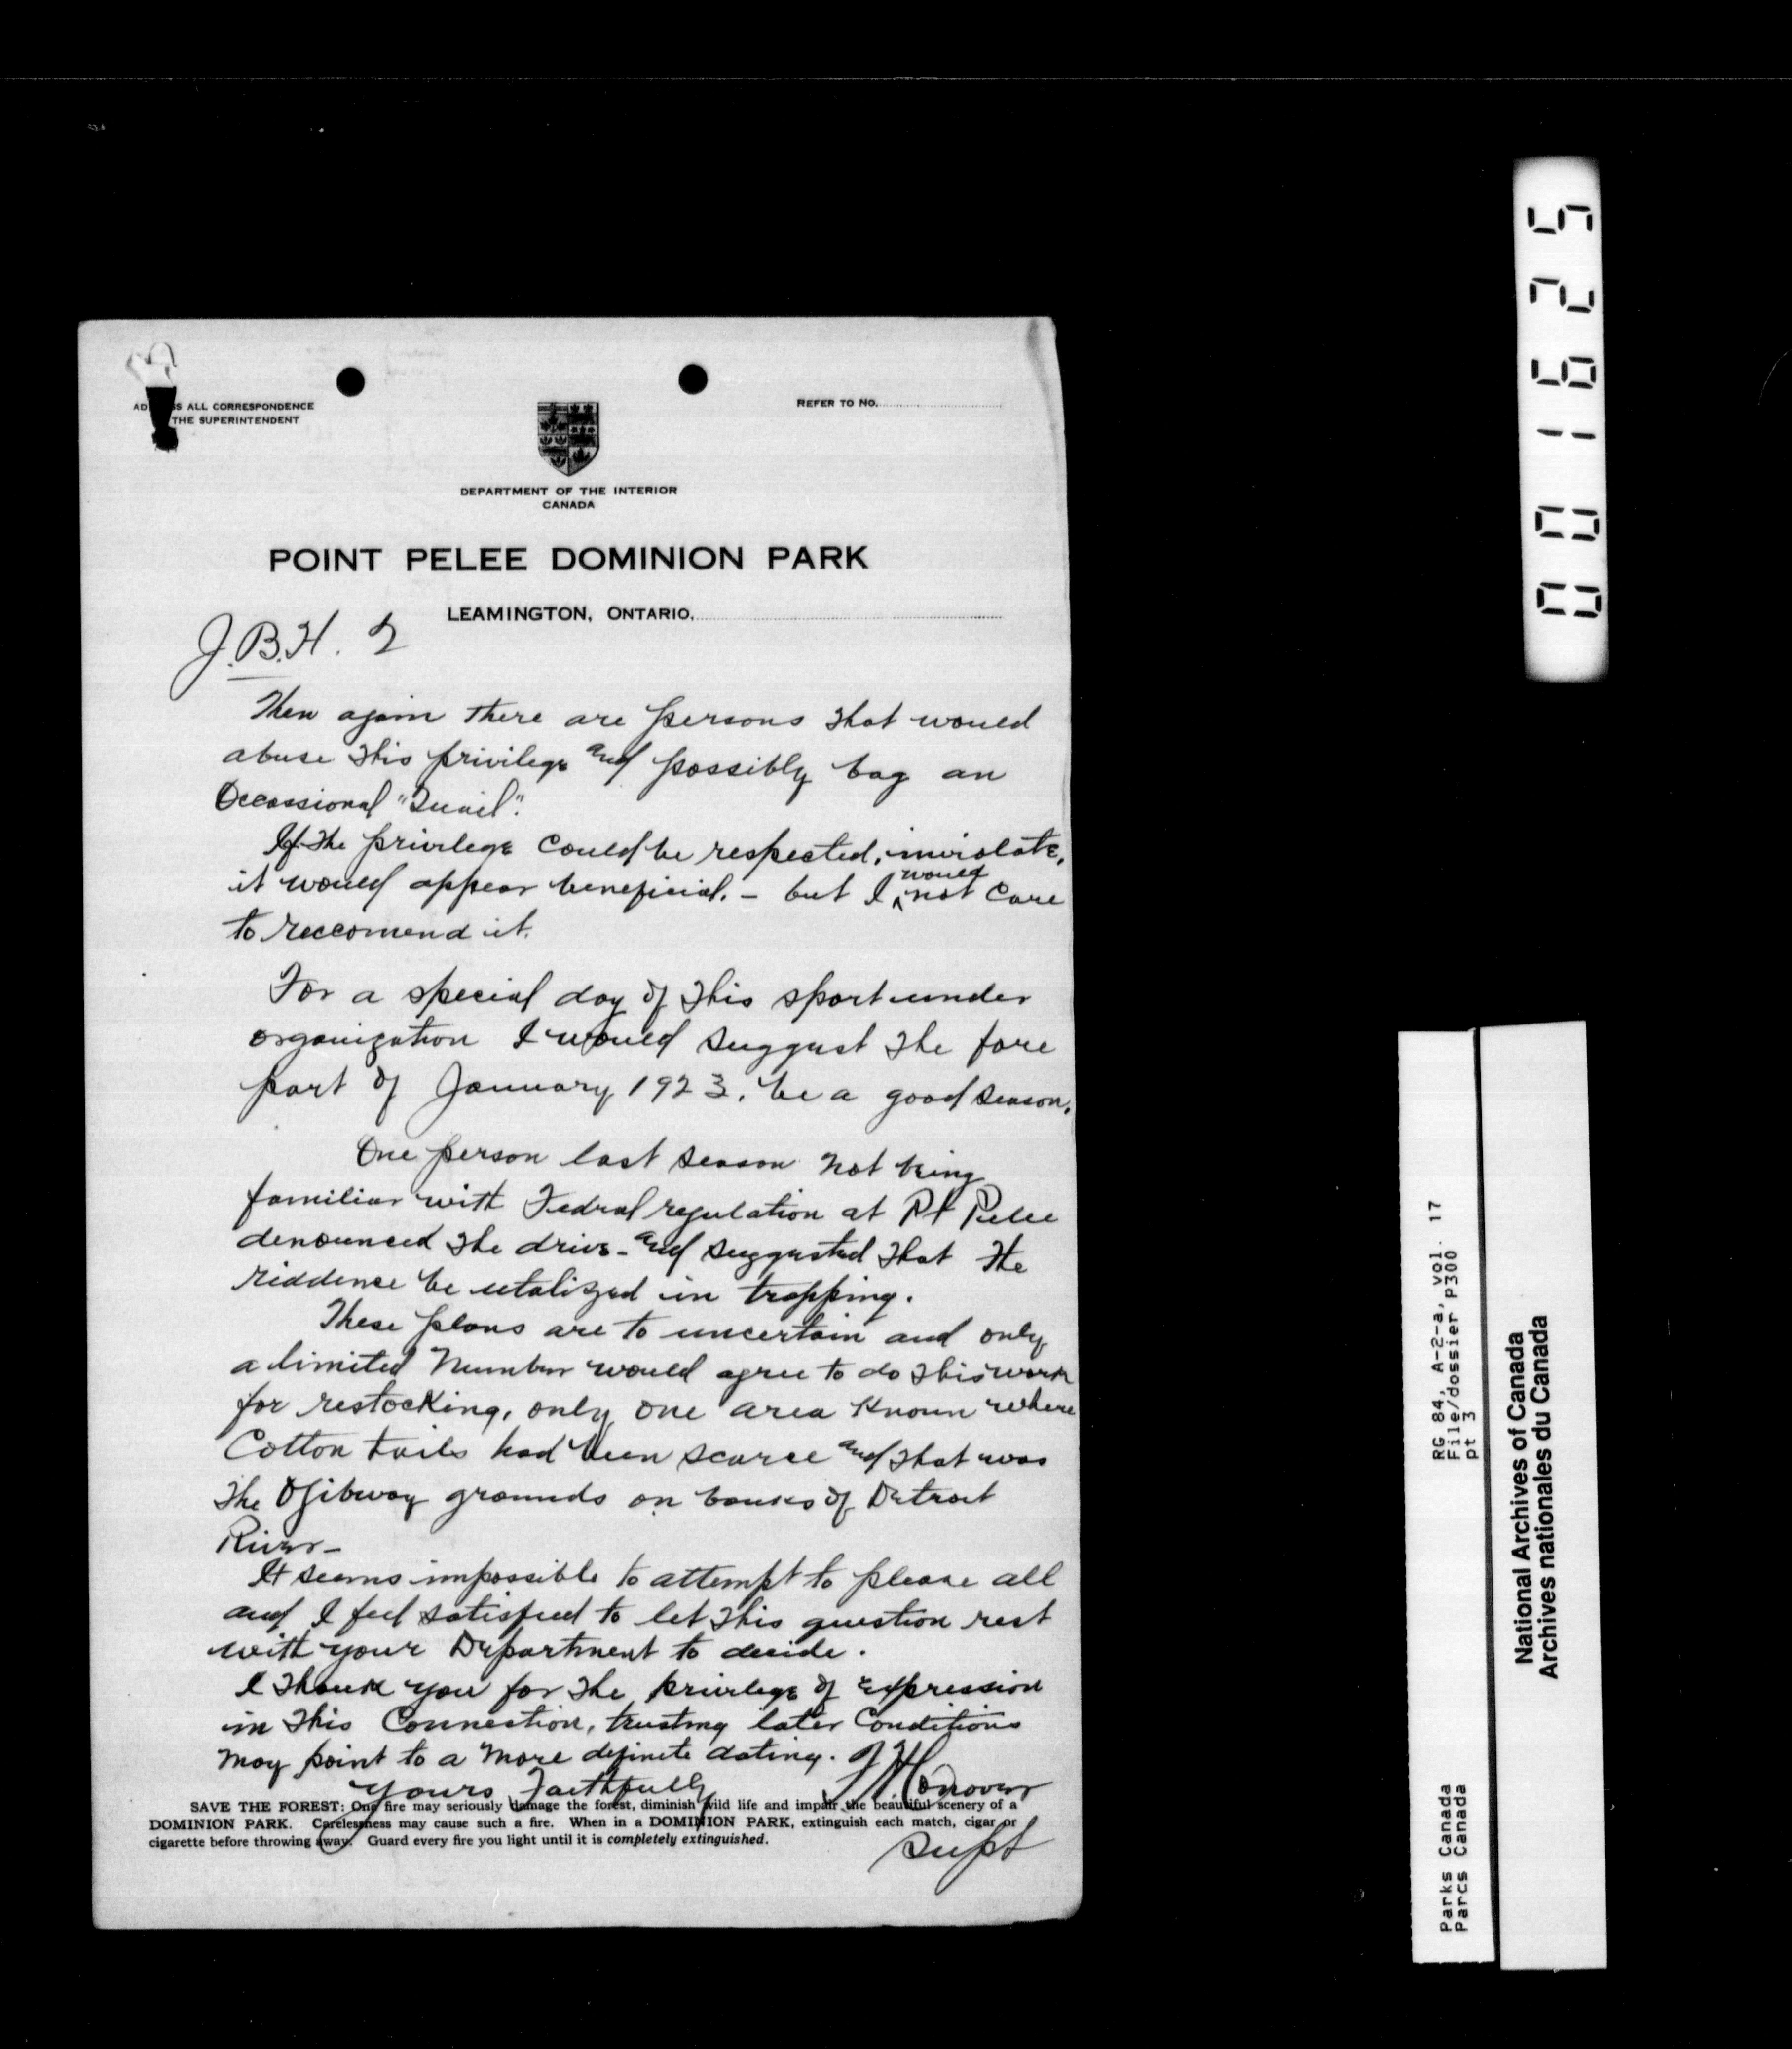 ALL CORRESPONDENCE
THE SUPERINTENDENT
REFER TO NO.
DEPARTMENT OF THE INTERIOR
CANADA
POINT PELEE DOMINION PARK
LEAMINGTON, ONTARIO,
J.B.H. 2
Then again there are persons that would
abuse this privilege and possibly bag an
Occassional "Quail".
If the privilege could be respected, inviolate,
it would appear beneficial. - but I would not care
to reccomend it.
For a special day of this sport under
organization I would suggest the fore
part of January 1923, be a good season.
One person last season not being
familiar with Fedral regulation at Pt Pelee
denounced the drive - and suggested that the
riddence be utalized in trapping.
These plans are to uncertain and only
a limited number would agree to do this work
for restocking, only one area known where
Cotton tails had been scarce and that was
the Ojibway grounds on banks of Detroit
River -
It seems impossible to attempt to please all
and I feel satisfied to let this question rest
with your Department to decide.
I thank you for the privilege of expression
in this Connection, trusting later Conditions
may point to a more definite dating.
Yours Faithfully
Conover
Supt
SAVE THE FOREST: One fire may seriously damage the forest, diminish wild life and impair the beautiful scenery of a
DOMINION PARK. Carelessness may cause such a fire. When in a DOMINION PARK, extinguish each match, cigar or
cigarette before throwing away. Guard every fire you light until it is completely extinguished.
001625
RG 84, A-2-a, vol. 17
File/dossier P300
pt 3
Parks Canada
Parcs Canada
National Archives of Canada
Archives nationales du Canada